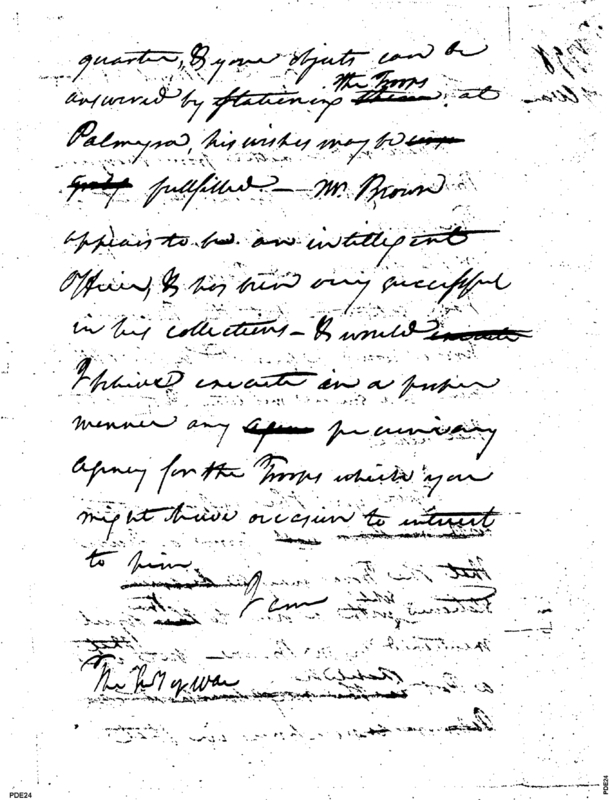 quarter, & your objects can be
the Troops
answered by stationing them at
Palmyra, his wishes may be
fullfilled — Mr. Brown
appears to be an intelligent
Officer, & has been very successful
in his collections — & would execute
I believe execute in a proper
manner any agen pecuniary
agency for the Troops which you
might have occasion to intrust
to him.
I am
The Secy of War
PDE24
PDE24